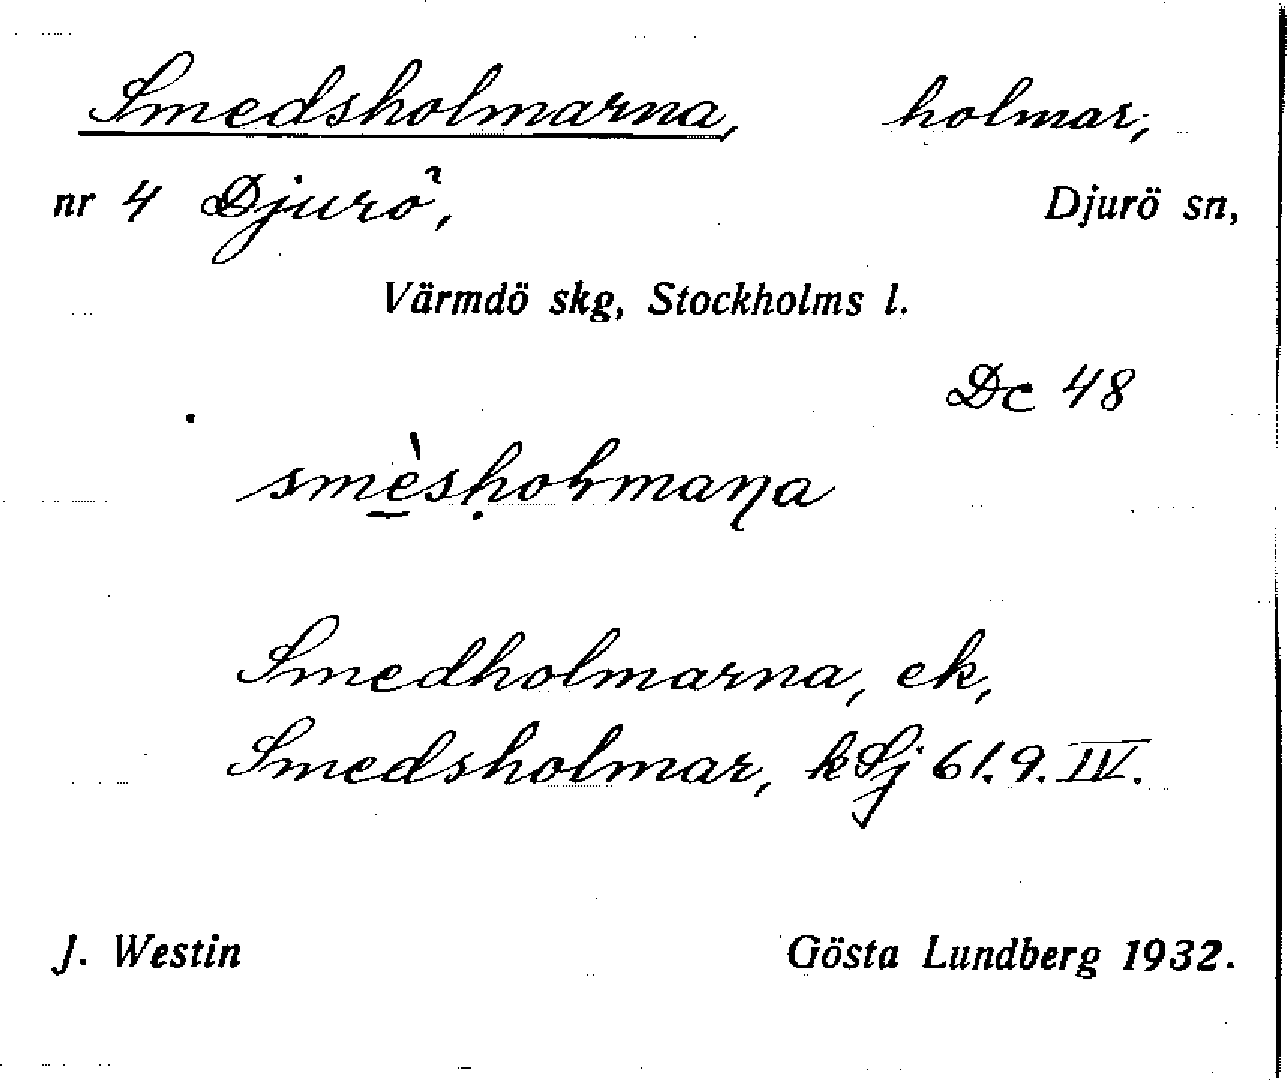 Smedsholmarna, holmar,
nr 4 Djurö, Djurö sn,
Värmdö skg, Stockholms l.
Dc 48
smèsholmaņa
Smedholmarna, ek,
Smedsholmar, kSj 61.9.IV.
J. Westin Gösta Lundberg 1932.